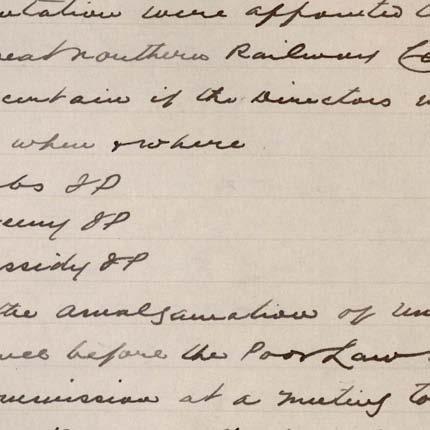 utation were appointed
eat Northern Railway Co
certain if the Directors
when & where
bs JP
eeny JP
ssidy JP
the amalgamation of Un
nce before the Poor Law
ommission at a meeting to